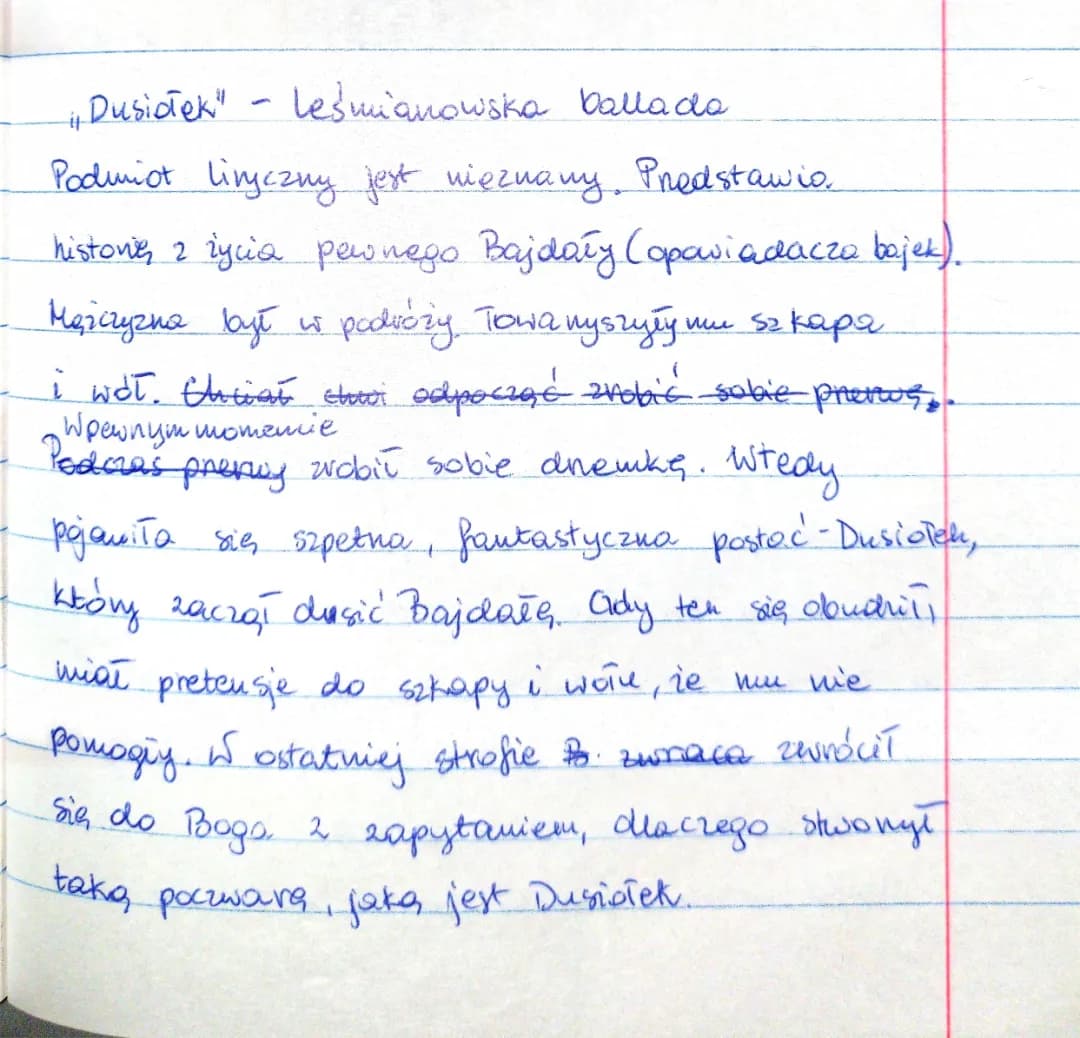 „Dusiołek" - Leśmianowska ballada
Podmiot liryczny jest nieznany. Przedstawia
historię z życia pewnego Bajdały (opowiadacza bajek).
Mężczyzna był w podróży. Towarzyszyły mu szkapa
i wół. Chciał chwi odpocząć zrobić sobie przerwę.
W pewnym momencie
Podczas przerwy zrobił sobie drzemkę. Wtedy
pojawiła się szpetna, fantastyczna postać - Dusiołek,
który zaczął dusić Bajdałę. Gdy ten się obudził,
miał pretensje do szkapy i wołu, że mu nie
pomogły. W ostatniej strofie B. zwraca zwrócił
się do Boga z zapytaniem, dlaczego stworzył
taką poczwarę, jaką jest Dusiołek.